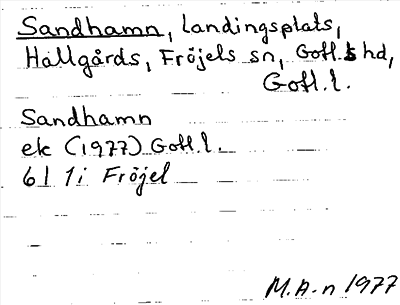 Sandhamn, landingsplats,
Hallgårds, Fröjels sn, Gotl.s hd,
Gotl.l.
Sandhamn
ek (1977) Gotl.l.
6I 1i Fröjel
M.A-n 1977